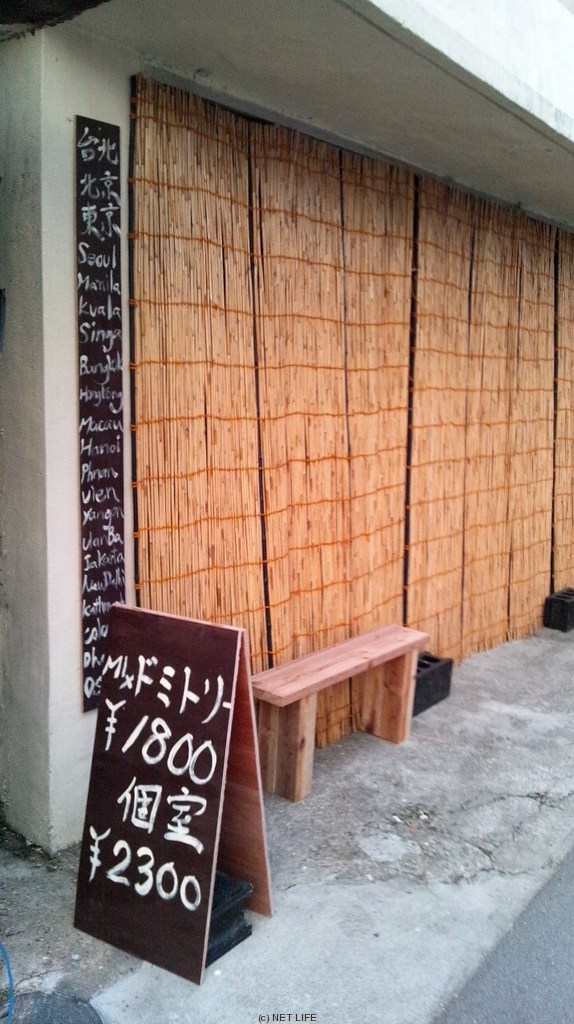 台北
北京
東京
Seoul
Manila
Kuala
Singa
Bangkok
HongKong
Macau
Hanoi
Phnon
vien
Yangon
UlanBa
Jakarta
NewDelhi
kathm
colo
Dha
MIXドミトリー
¥1800
個室
¥2300
(c) NET LIFE